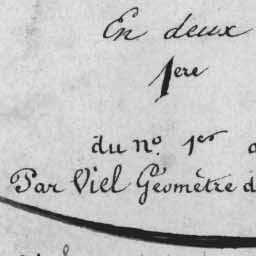 En deux
1ere
du no. 1er
Par Viel Géomètre d